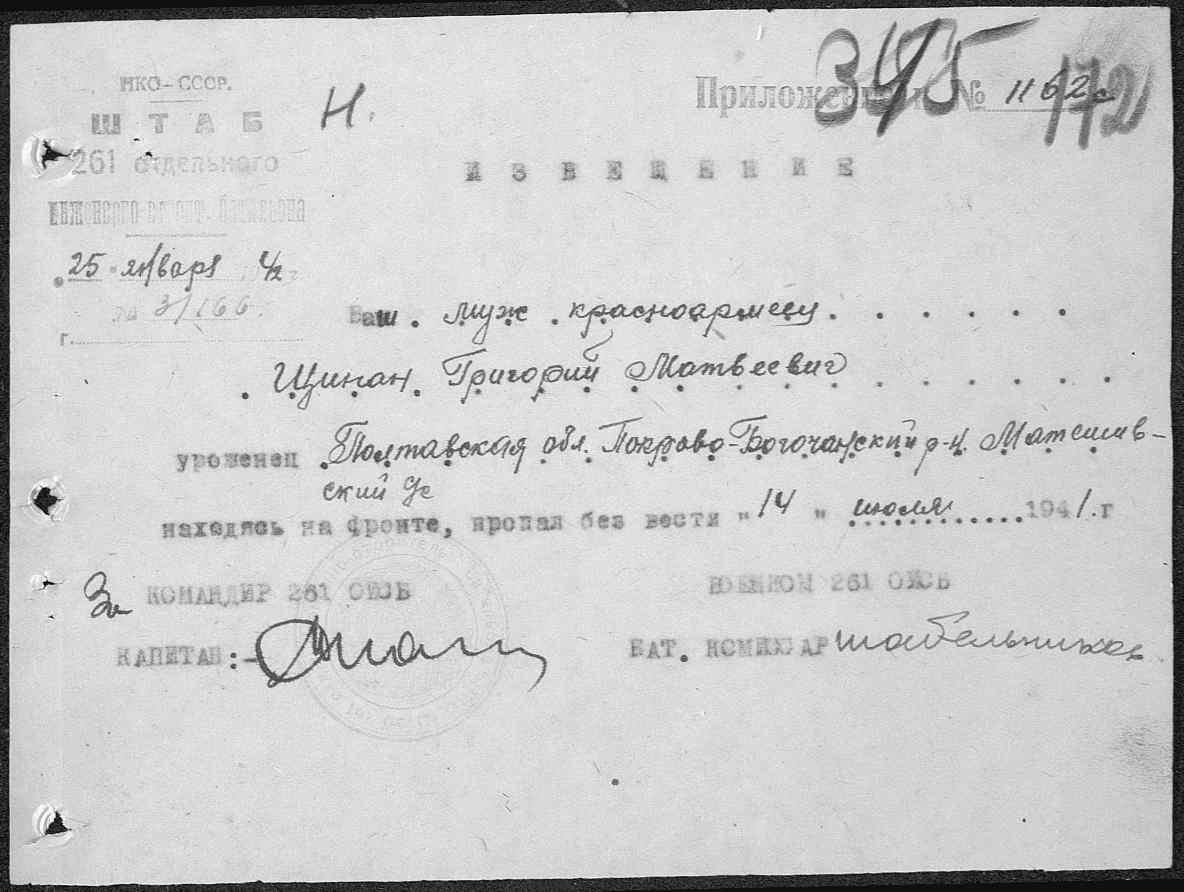 НКО-СССР.
ШТАБ
261 отдельного
25 января 42 г.
3/166.
г.
Н.
Приложение № 1162с
345
172
ИЗВЕЩЕНИЕ
Ваш муж красноармеец
Щинан Григорий Матвеевич
уроженец Полтавская обл. Покрово-Богочанский р-н.
ский
находясь на фронте, пропал без вести "14" июля 1941.г
За КОМАНДИР 261 ОИСБ
КАПИТАН:
ВОЕНКОМ 261 ОИСБ
БАТ. КОМИССАР Шабельников